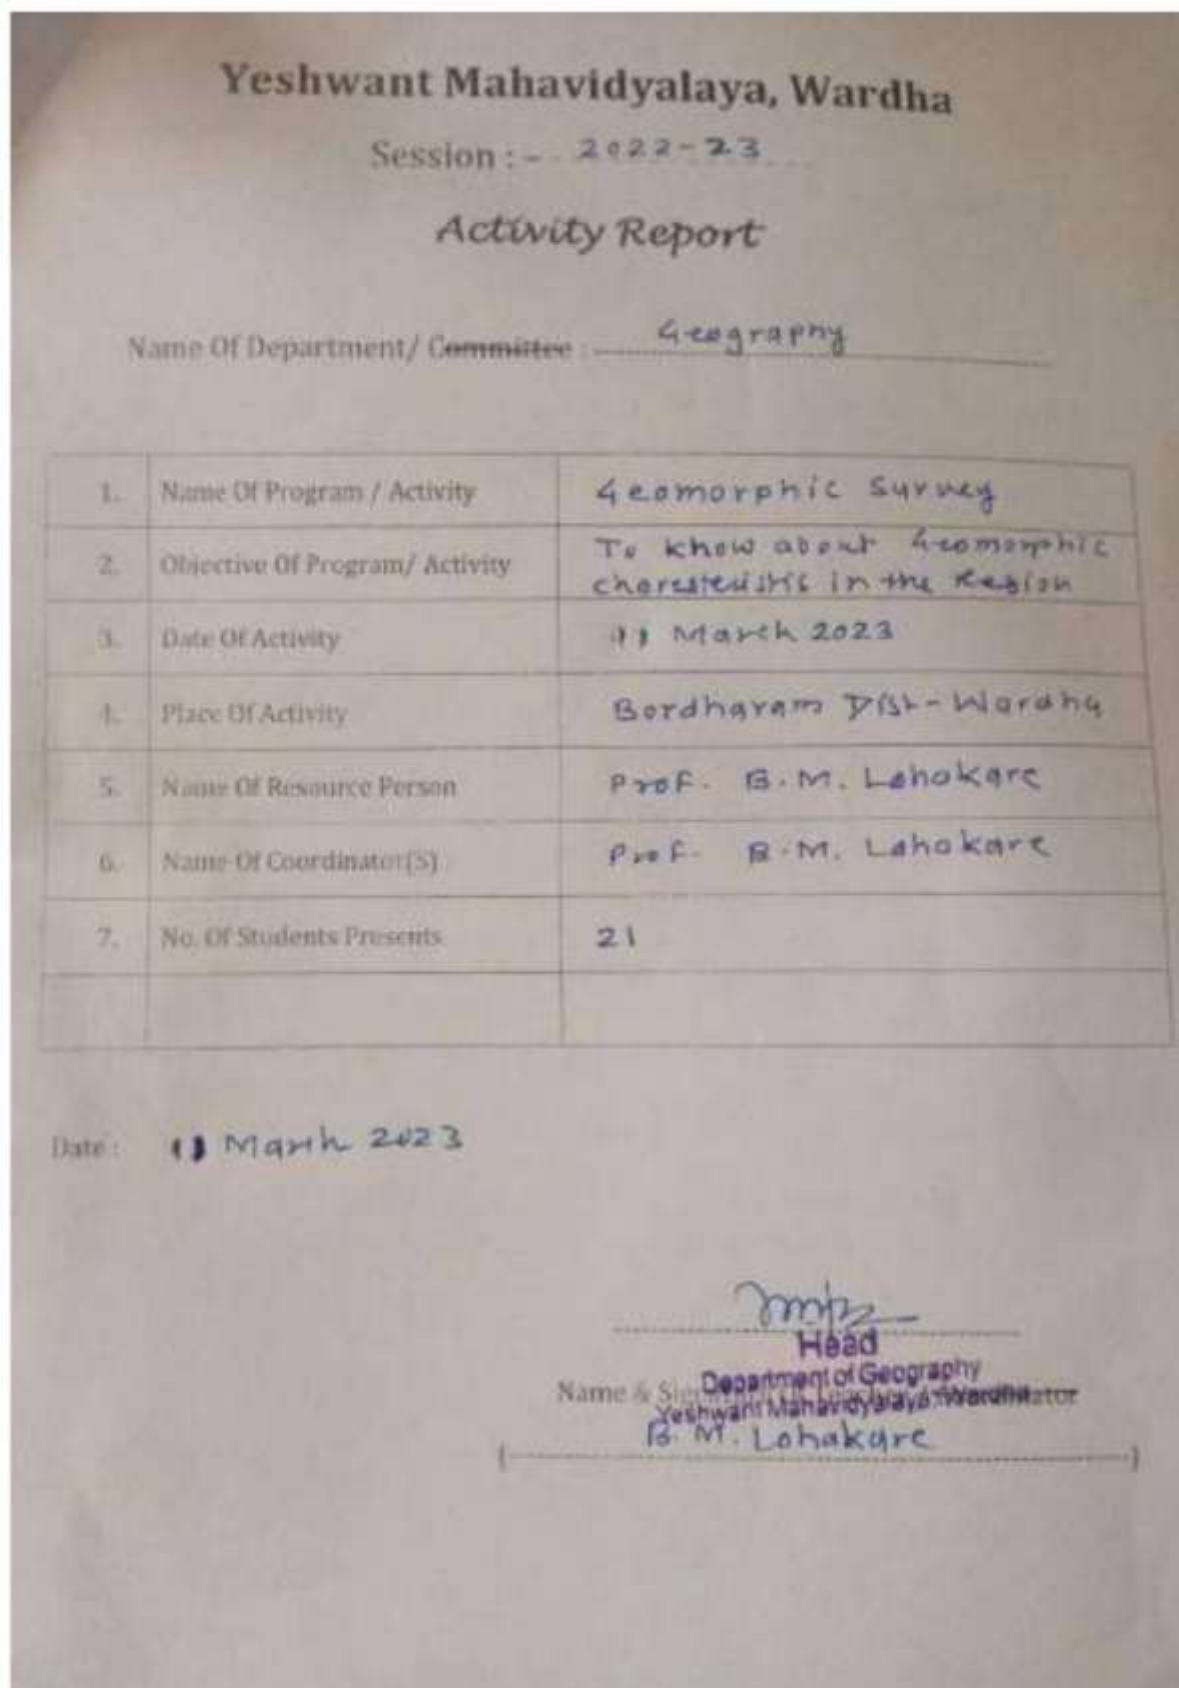 Yeshwant Mahavidyalaya, Wardha
Session :- 2022-23
Activity Report
Name Of Department/ Committee : Geography
1. Name Of Program / Activity Geomorphic Survey
2. Objective Of Program/ Activity To know about Geomorphic
in the Region
3. Date Of Activity 11 March 2023
4. Place Of Activity Bordharam Dist-Wardha
5. Name Of Resource Person Prof. B.M. Lohakare
6. Name Of Coordinator(S) Prof. B.M. Lohakare
7. No. Of Students Presents 21
Date : 11 March 2023
Head
Department of Geography
Name &
Yeshwant Mahavidyalaya, Wardha
B. M. Lohakare